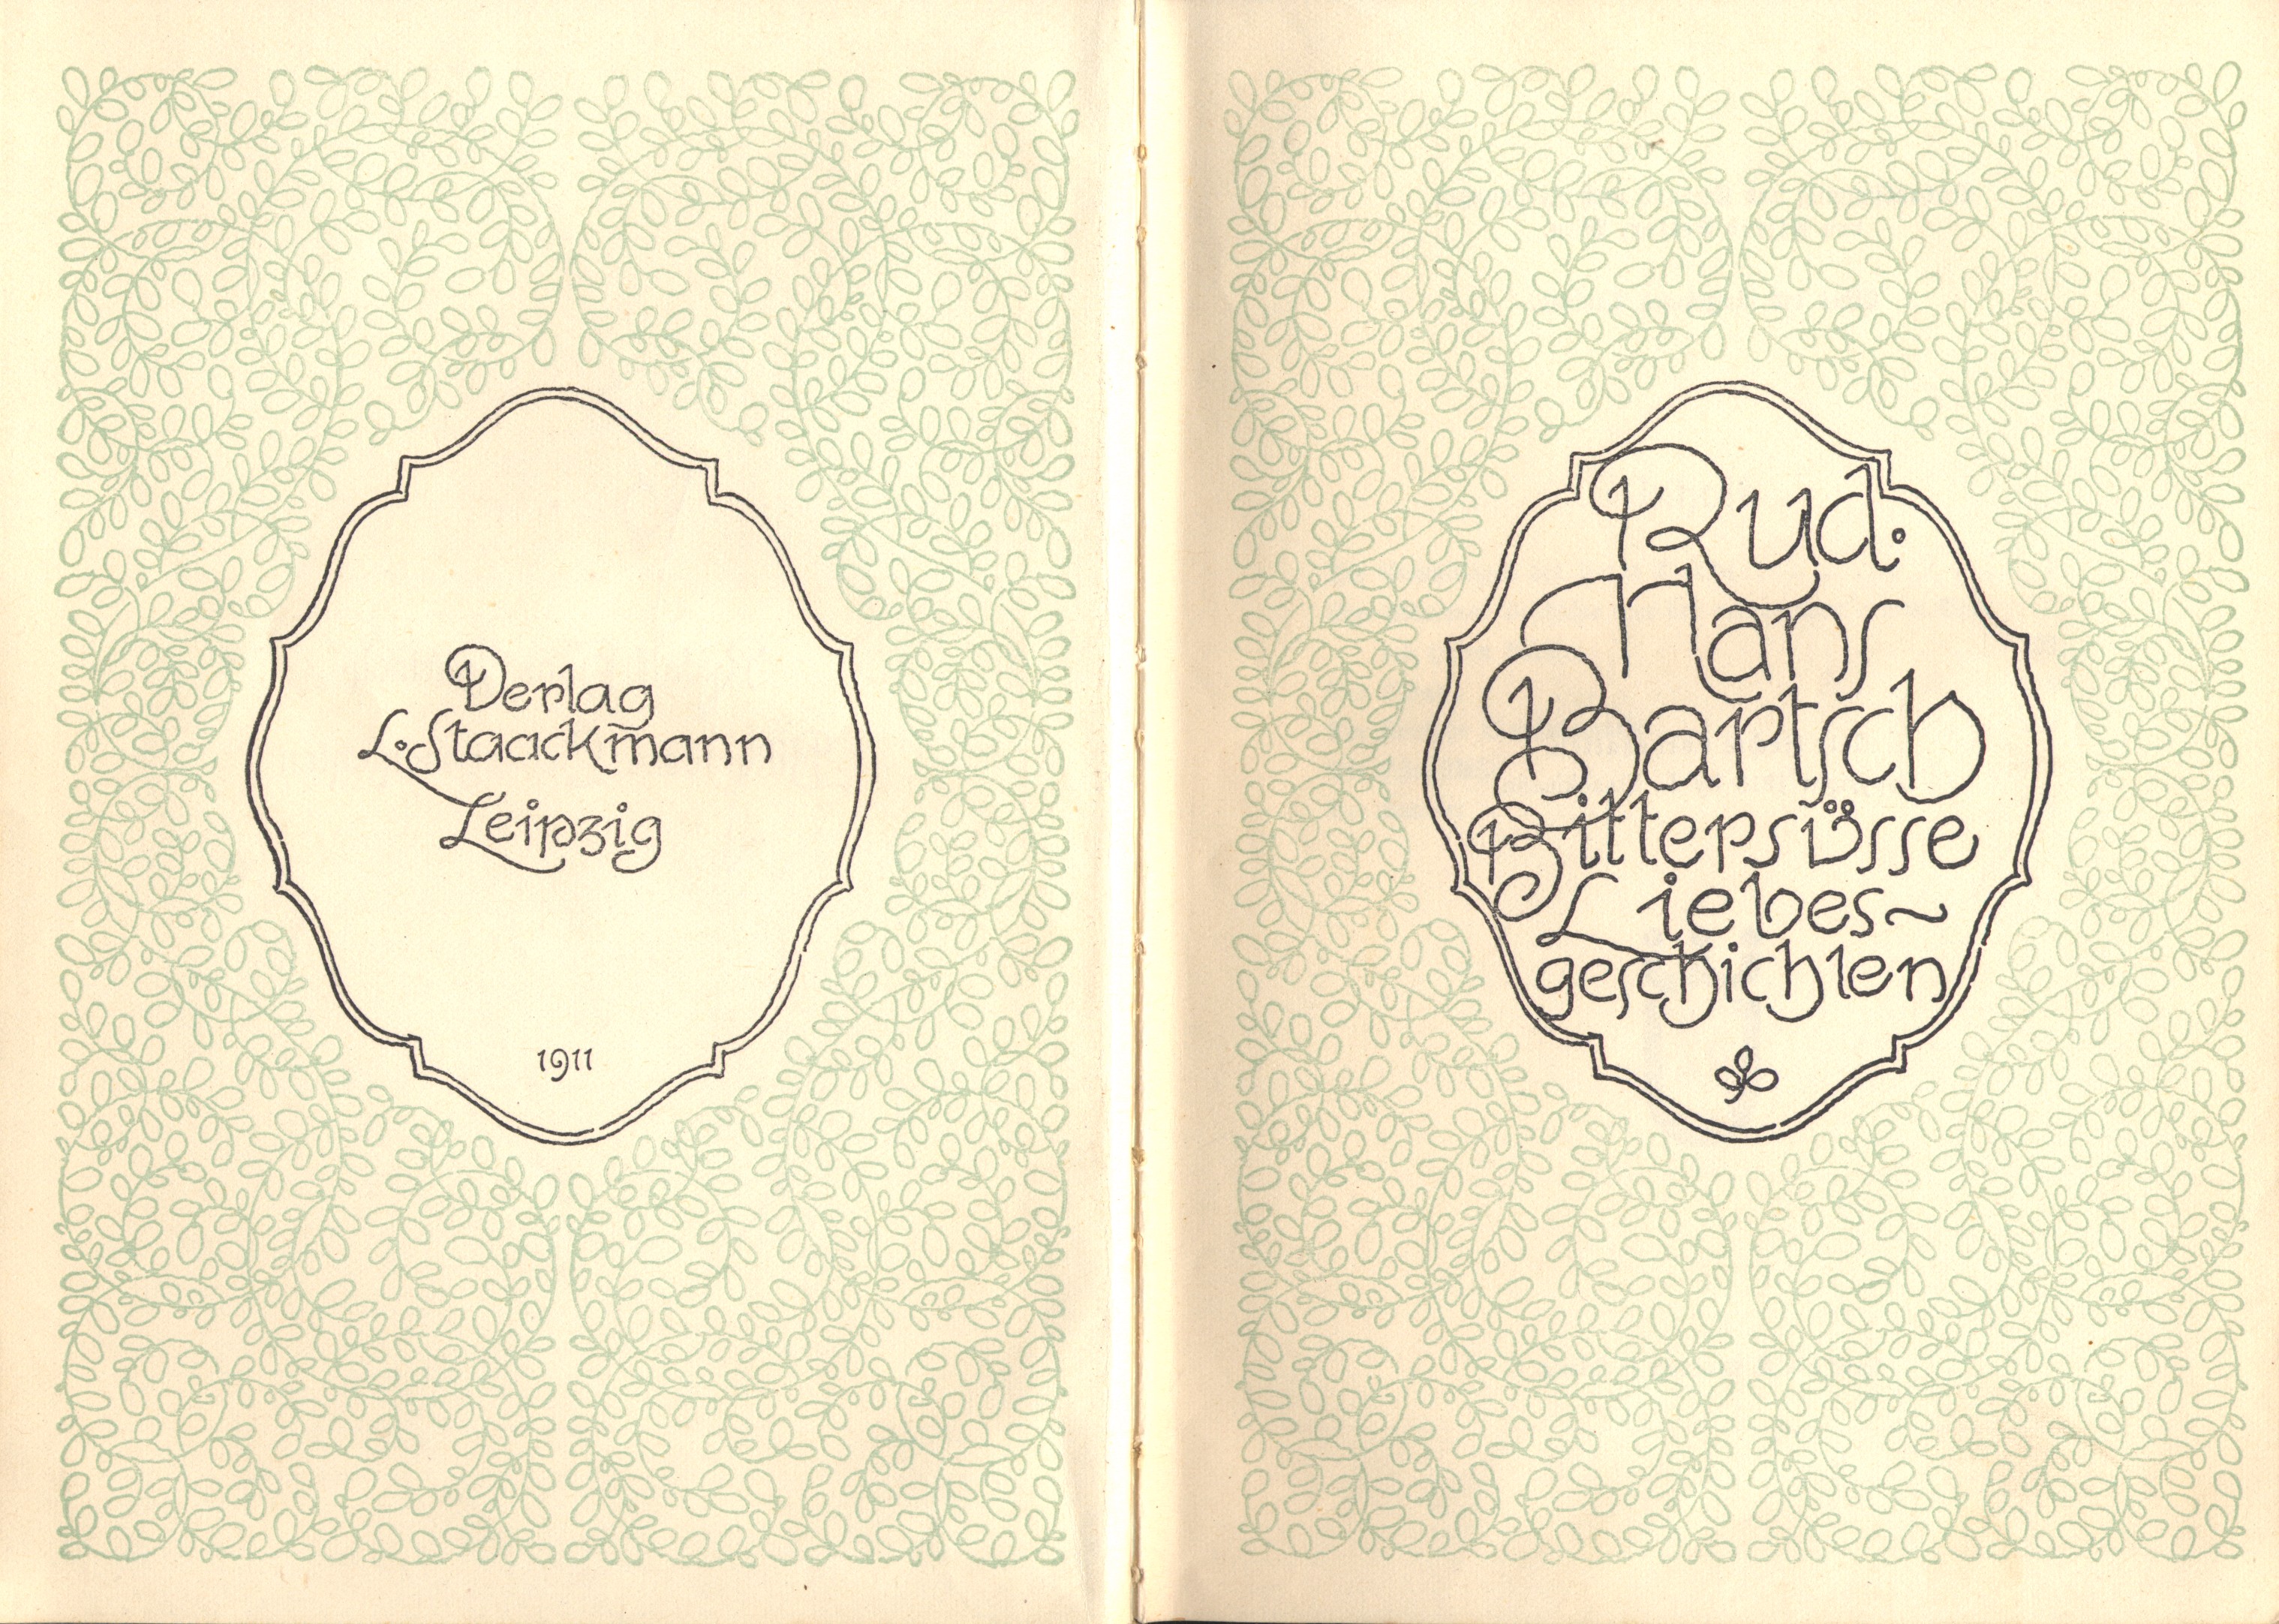 Verlag
L. Staackmann
Leipzig
1911
Rud.
Hans
Bartsch
Bittersüsse
Liebes~
geschichten